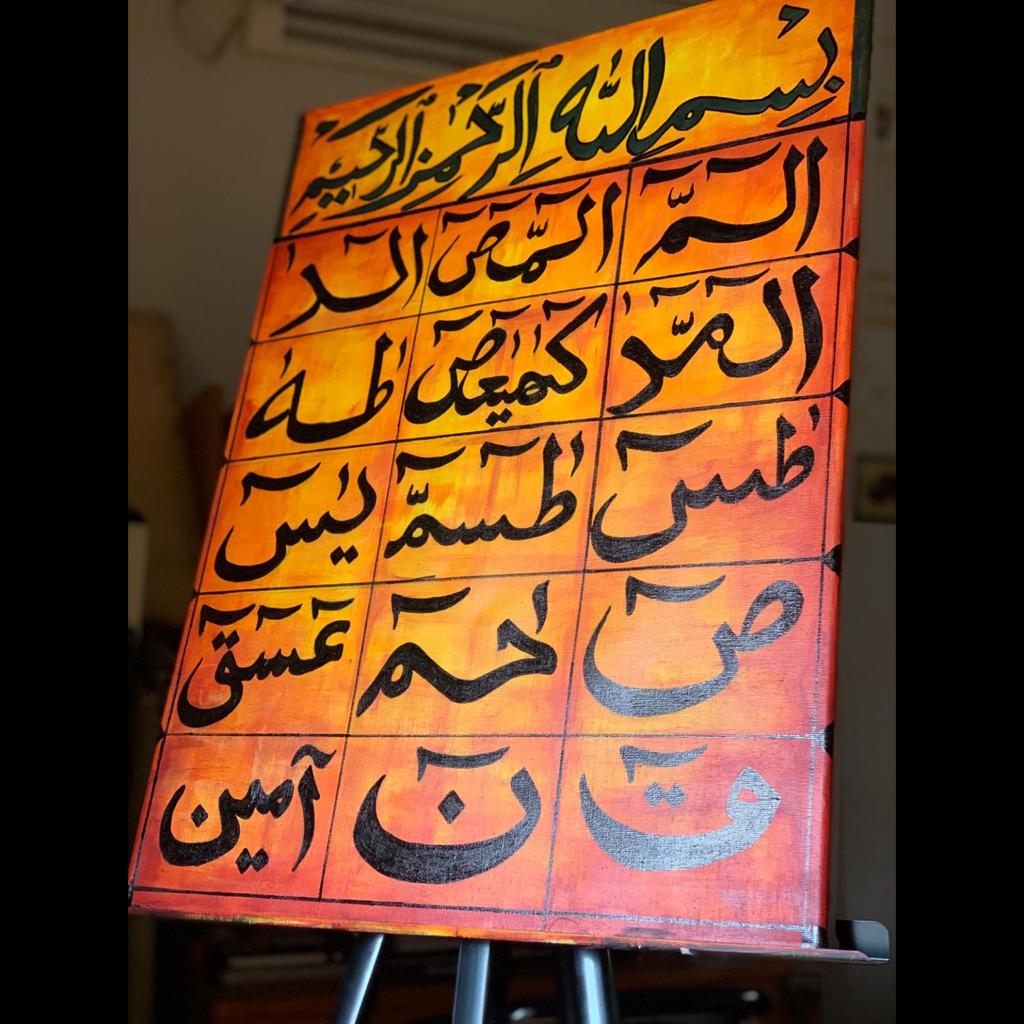 بسم الله الرحمن الرحيم
الٓمّٓ الٓمّٓصٓ الٓر
الٓمّٓرٰ كٓهٰيٰعٓصٓ طٰهٰ
طٰسٓ طٰسٓمّٓ يٰسٓ
صٓ حٰمٓ عٓسٓقٓ
قٓ نٓ آمين